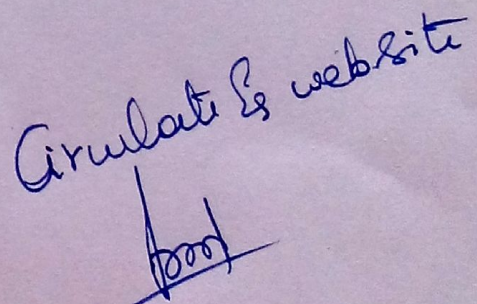 Circulate & website